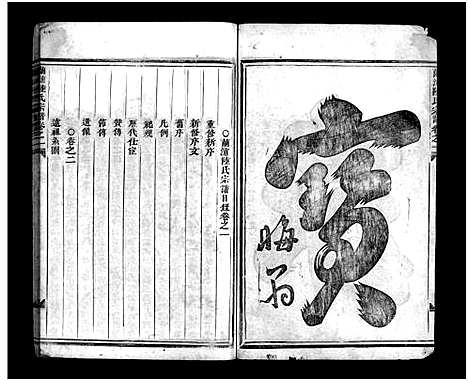 寳
晦翁
○蘭澝陸氏宗譜目錄卷之一
重修新序
新修序文
舊序
凡例
祠規
歷代仕宦
贊傳
節傳
遺像
○卷之二
遠祖系圖